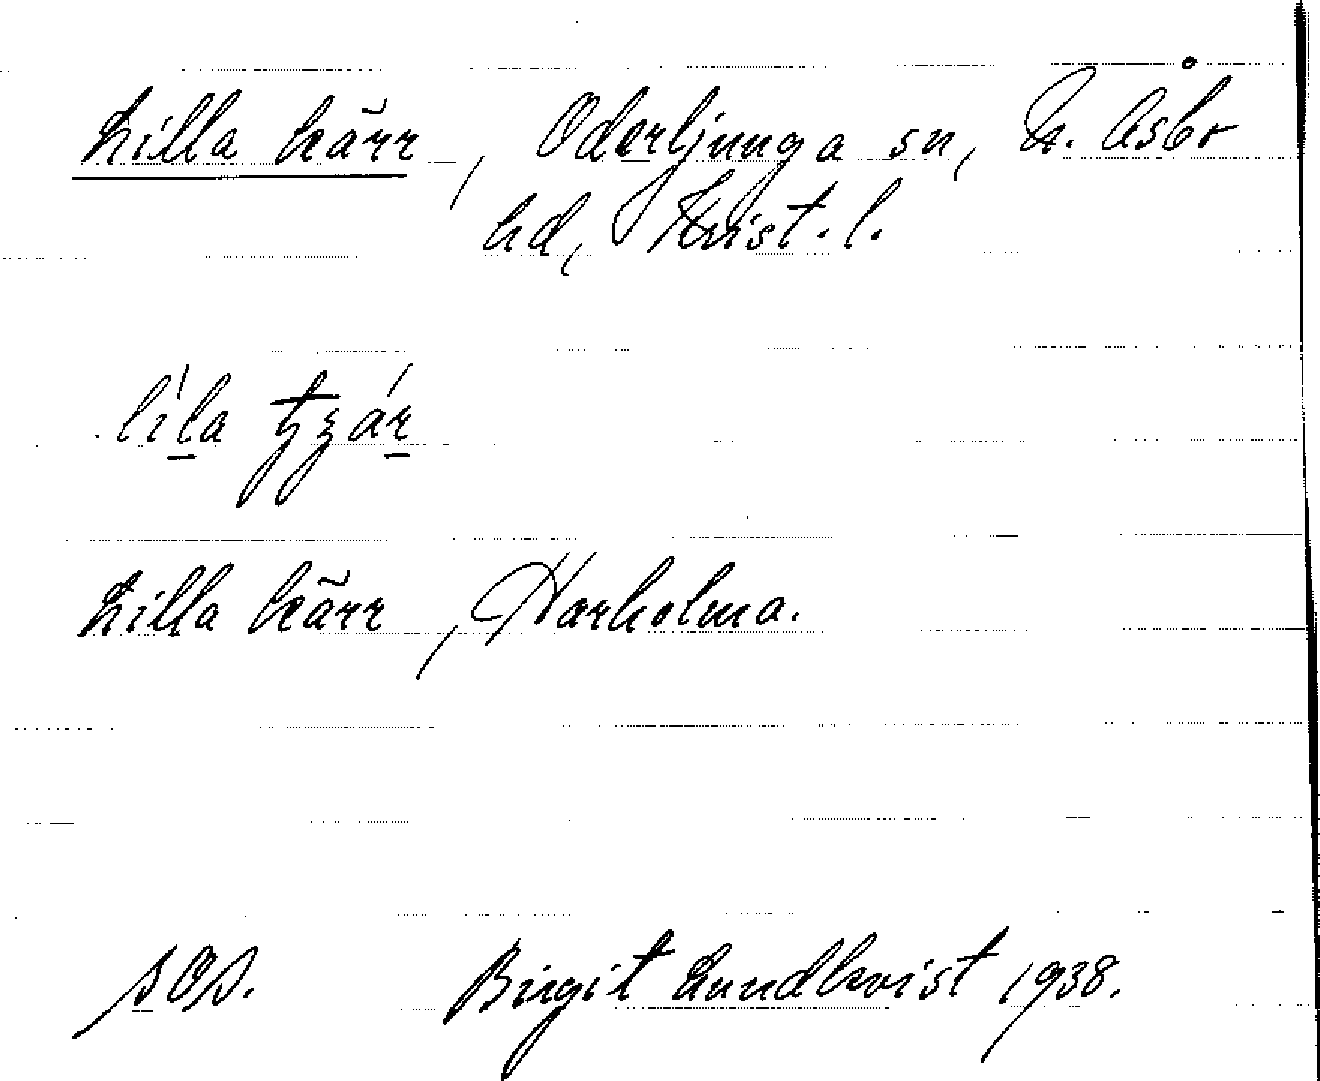 Lilla kärr, Oderljunga sn, N. Åsbo
hd, Krist. l.
lila
Lilla kärr, Harholma.
sOs. Birgit Lundkvist 1938.